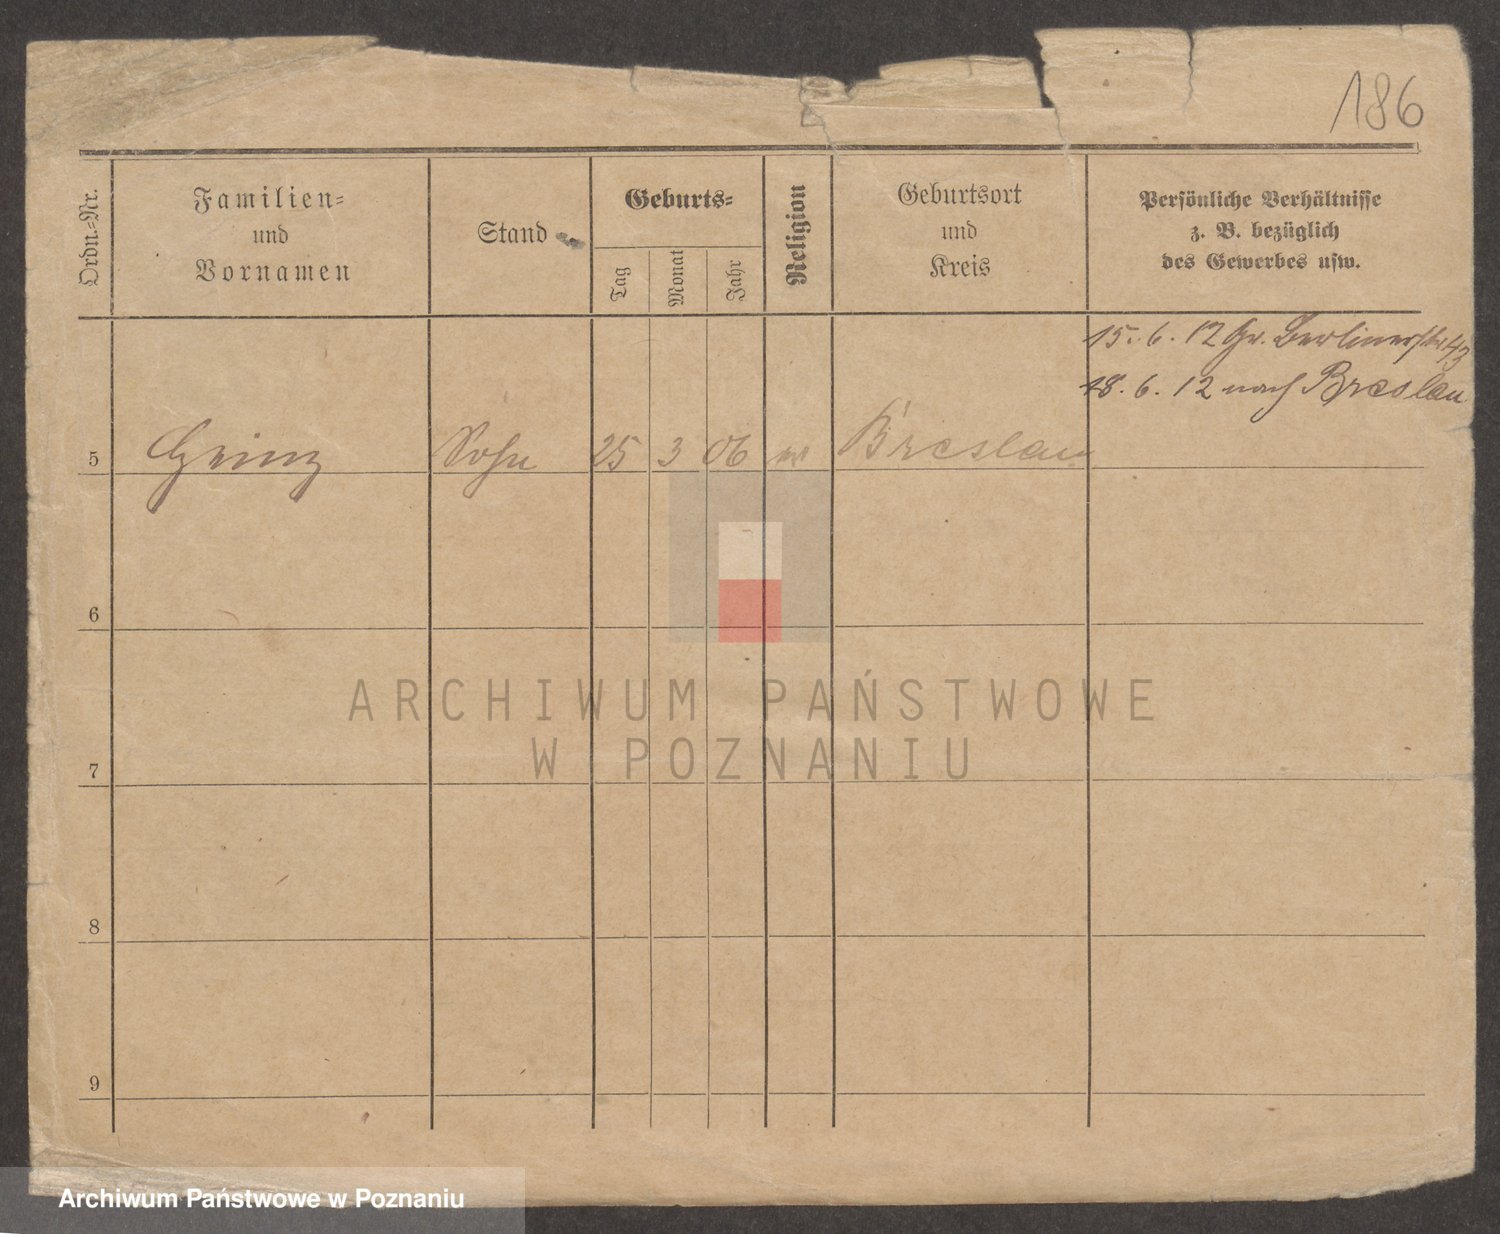 186
Ordn.-Nr.
Familien-
und
Vornamen
Stand
Geburts-
Tag
Monat
Jahr
Religion
Geburtsort
und
Kreis
Persönliche Verhältnisse
z. B. bezüglich
des Gewerbes usw.
15. 6. 12 Gr. Berlinerstr 43
18. 6. 12 nach Breslau
5 Heinz Sohn 25 3 06 ev Breslau
6
7
8
9
ARCHIWUM PAŃSTWOWE
W POZNANIU
Archiwum Państwowe w Poznaniu